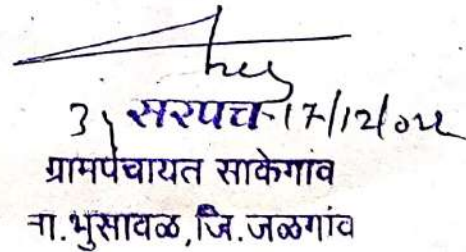 सरपंच 17/12/022
ग्रामपंचायत साकेगांव
ता.भुसावळ,जि.जळगांव